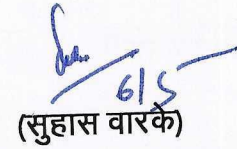 6/5
(सुहास वारके)